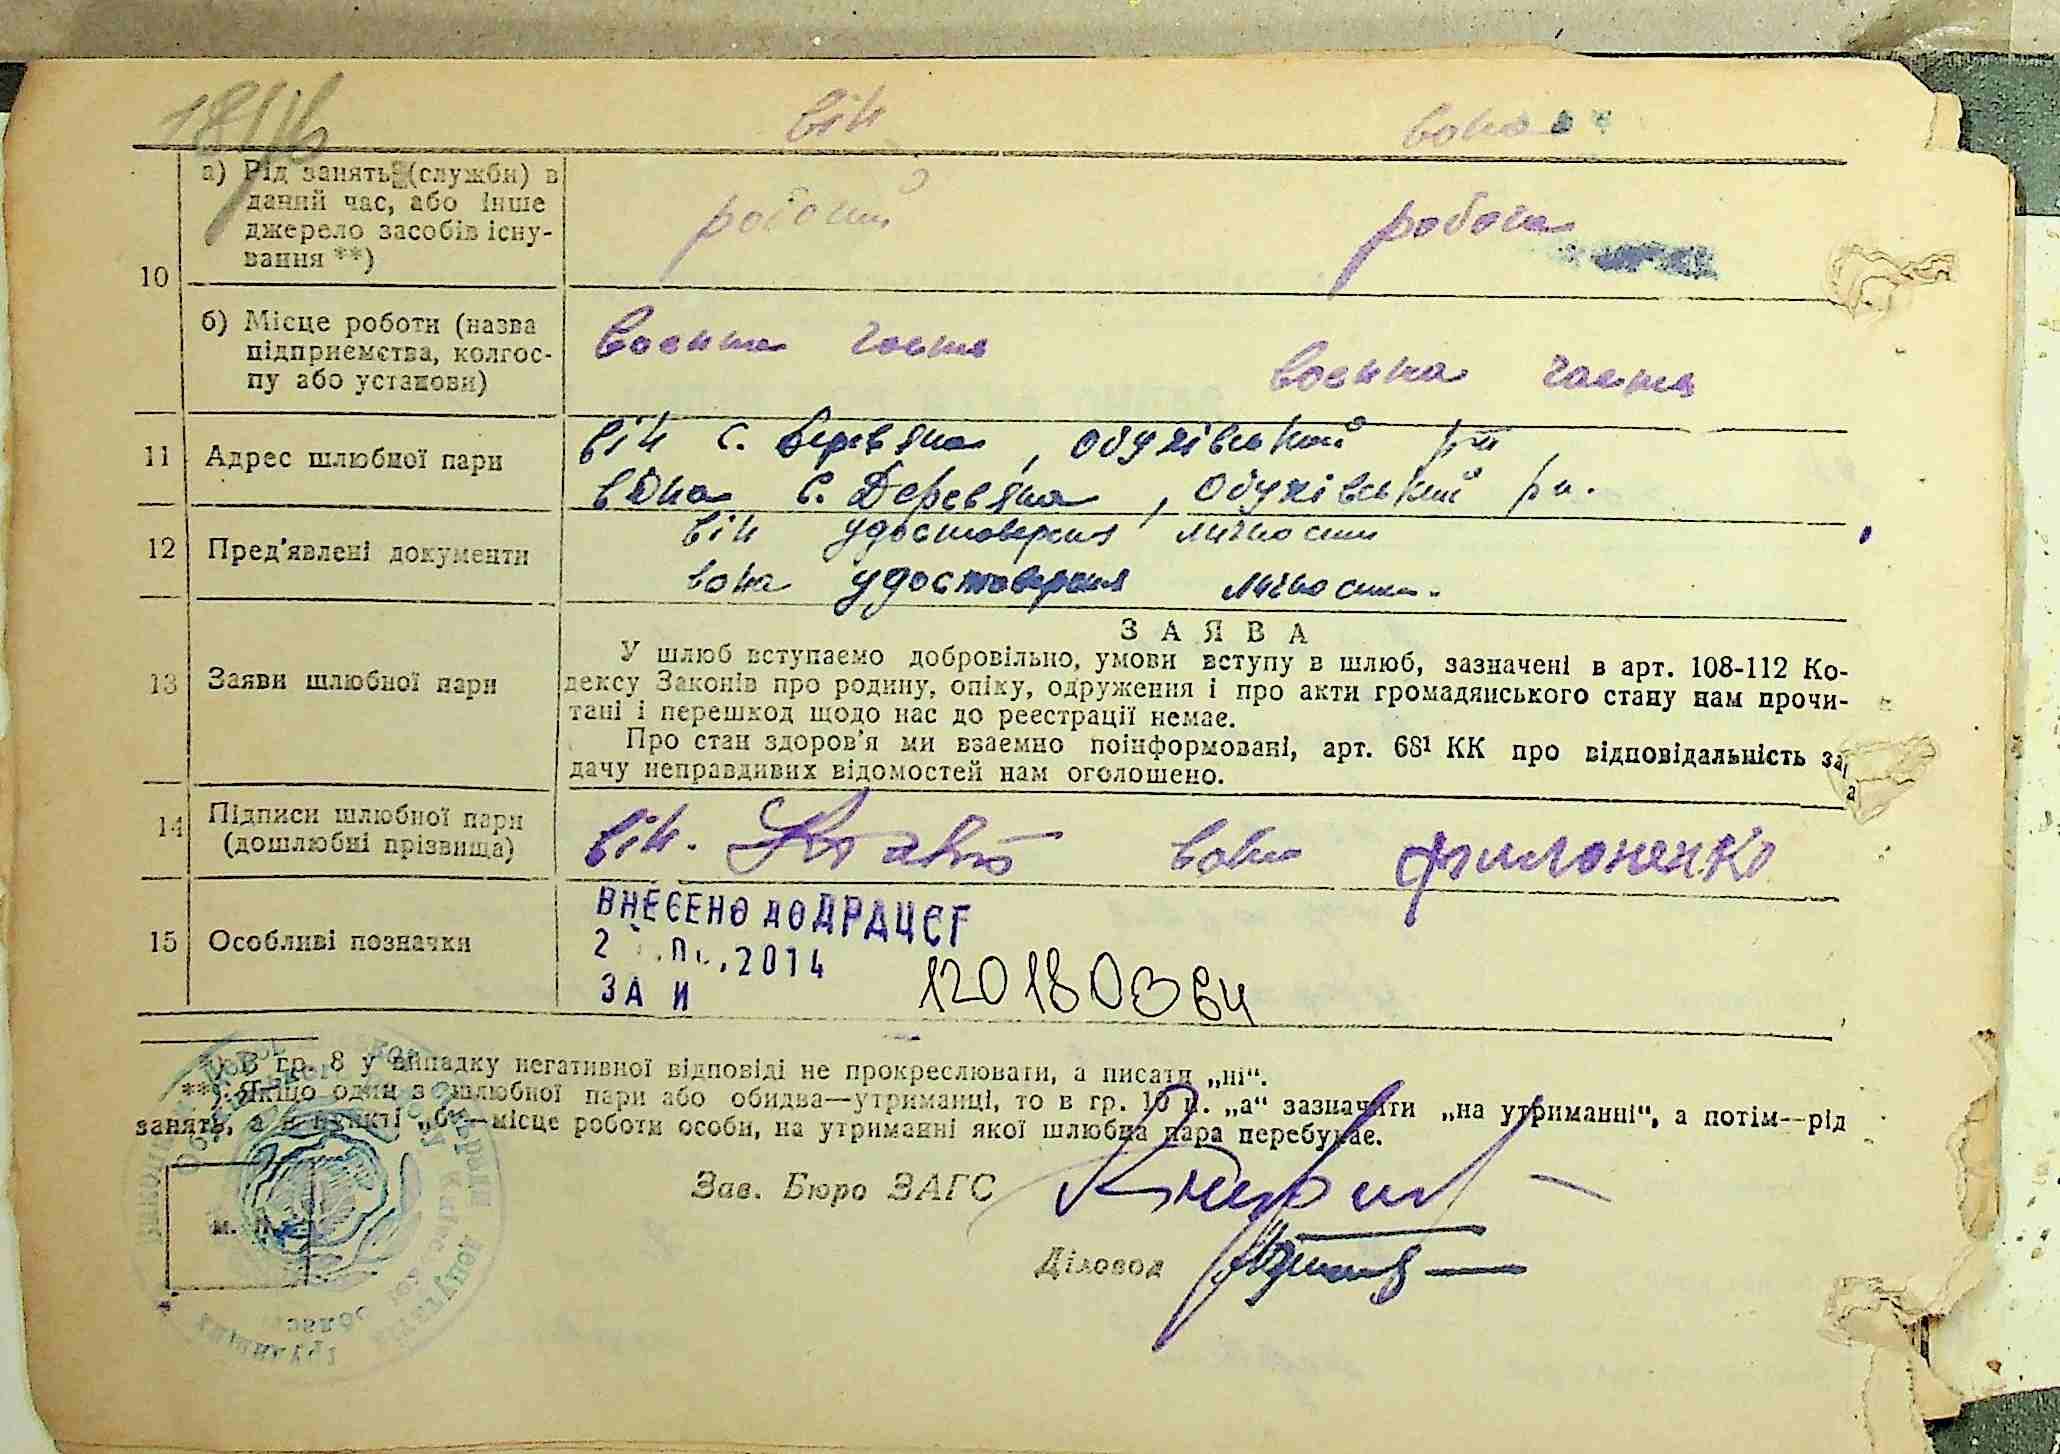 він вона
а) Рід занять (служби) в
даний час, або інше
джерело засобів існу-
вання **)
робочий робоча
10
б) Місце роботи (назва
підприємства, колгос-
пу або установи)
Воєнна часть
воєнна часть
11 Адрес шлюбної пари
він с. Дерев'яна, Обухівський р-н
вона с. Дерев'яна, Обухівський р-н.
12 Пред'явлені документи
він удостоверения личности
вона удостоверения личности.
13 Заяви шлюбної пари
ЗАЯВА
У шлюб вступаємо добровільно, умови вступу в шлюб, зазначені в арт. 108-112 Ко-
дексу Законів про родину, опіку, одруження і про акти громадянського стану нам прочи-
тані і перешкод щодо нас до реєстрації немає.
Про стан здоров'я ми взаємно поінформовані, арт. 68¹ КК про відповідальність за
дачу неправдивих відомостей нам оголошено.
14 Підписи шлюбної пари
(дошлюбні прізвища)
він. вона Филоненко
15 Особливі позначки
ВНЕСЕНО ДО ДРАЦСГ
2014
ЗА И 120180364
*) В гр. 8 у випадку негативної відповіді не прокреслювати, а писати „ні“.
**) Якщо один з шлюбної пари або обидва—утриманці, то в гр. 10 п. „а“ зазначити „на утриманні“, а потім—рід
занять, а в пункті „б“—місце роботи особи, на утриманні якої шлюбна пара перебуває.
Зав. Бюро ЗАГС
Діловод
м. п.